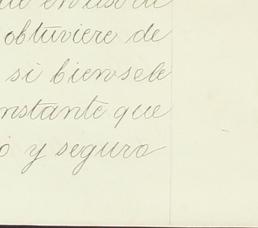 en uso de
obtuviere de
si bien se le
nstante que
o y seguro